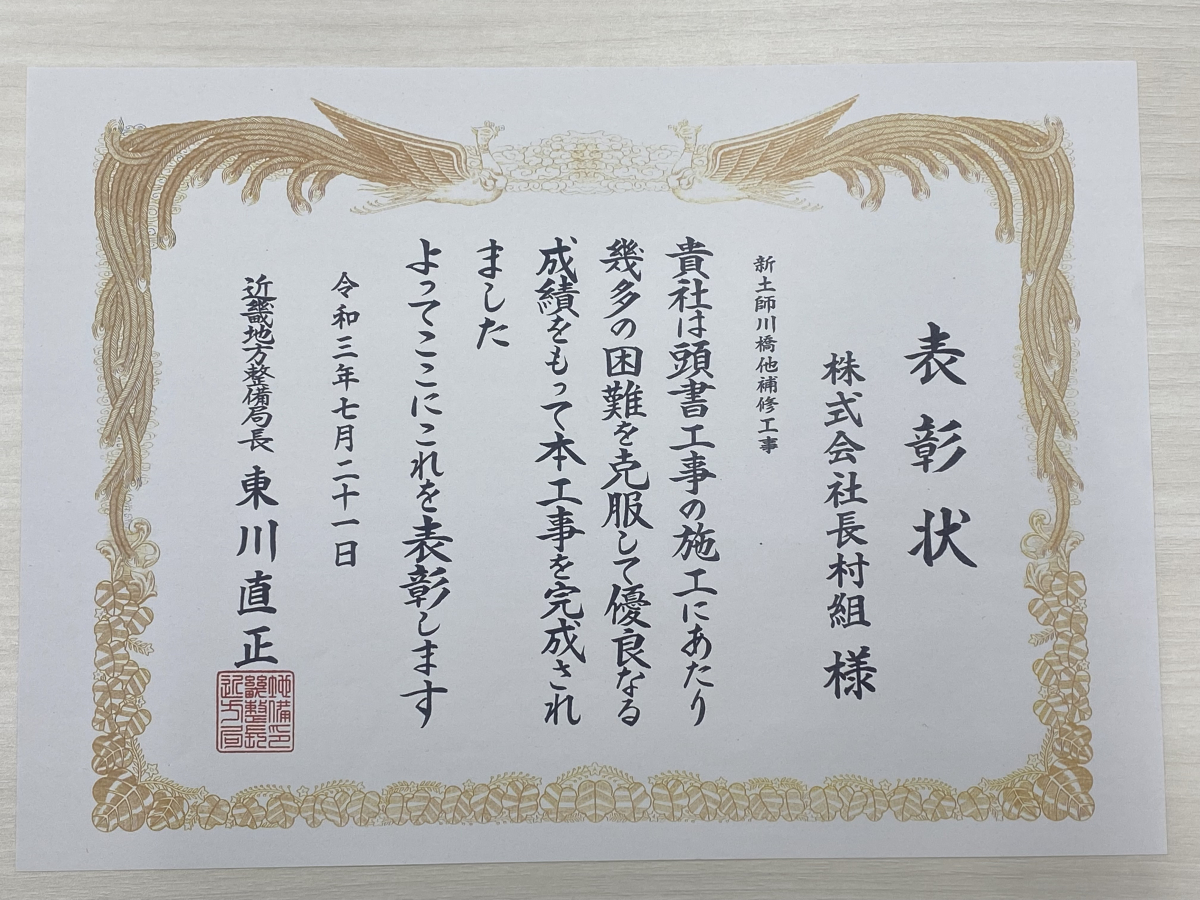 表彰状
株式会社長村組 様
新土師川橋他補修工事
貴社は頭書工事の施工にあたり
幾多の困難を克服して優良なる
成績をもって本工事を完成され
ました
よってここにこれを表彰します
令和三年七月二十一日
近畿地方整備局長 東川直正